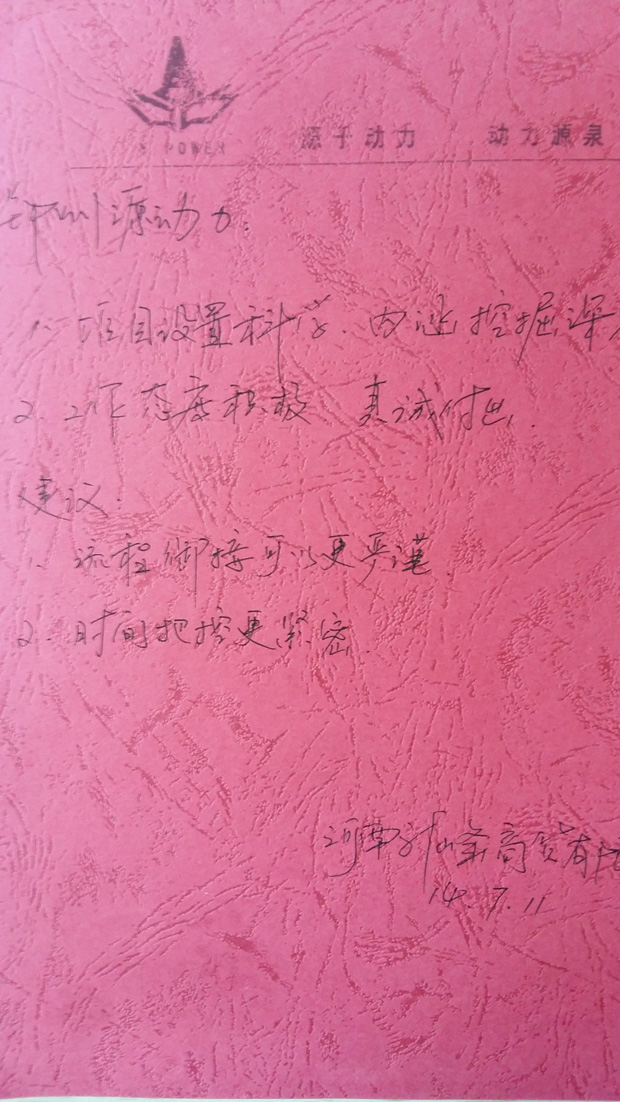 S POWER
源于动力 动力源泉
郑州源动力:
1、项目设置科学、内涵挖掘深
2、工作态度积极、真诚付出.
建议:
1、流程衔接可以更严谨.
2、时间把控更紧密.
河南 峰商贸有
14.7.11